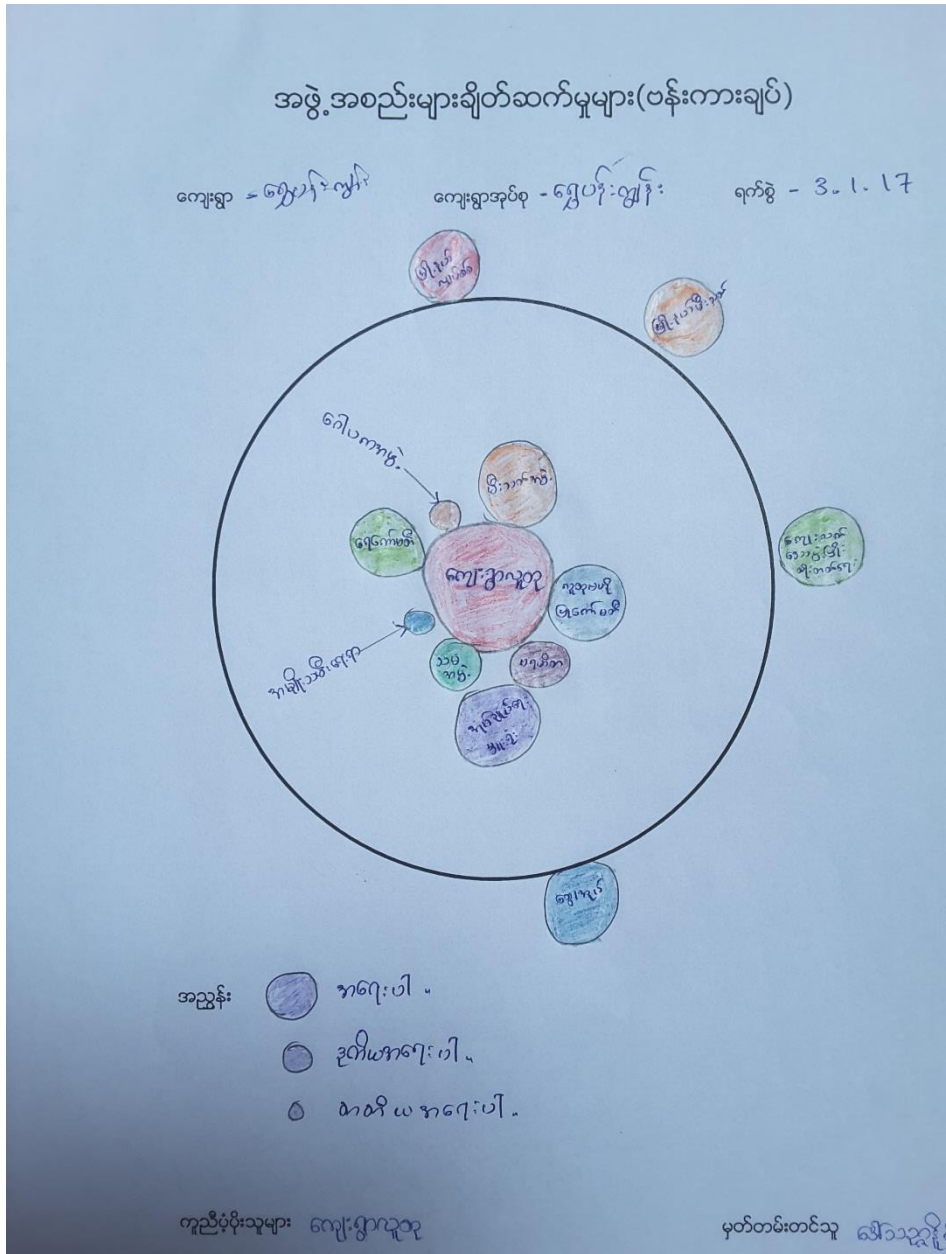 အဖွဲ့အစည်းများချိတ်ဆက်မှုများ(ဗန်းကားချပ်)
ကျေးရွာ - ရွှေပန်းကျွန်း ကျေးရွာအုပ်စု - ရွှေပန်းကျွန်း ရက်စွဲ - 3.1.17
မြို့နယ်
မြို့နယ်မီးသတ်
ဂေါပကအဖွဲ့
မီးသတ်အဖွဲ့
ရေကော်မတီ
ကျေးရွာလူထု
ကျေးလက်
ဒေသဖွံ့ဖြိုး
တိုးတက်ရေး
လူထုဗဟို
ပြုကော်မတီ
အမျိုးသမီးရေးရာ
သမ
အဖွဲ့
ပရဟိတ
အုပ်ချုပ်ရေး
မှူးရုံး
အညွှန်း
အရေးပါ ။
ဒုတိယအရေးပါ ။
တတိယအရေးပါ ။
ကူညီပံ့ပိုးသူများ ကျေးရွာလူထု မှတ်တမ်းတင်သူ